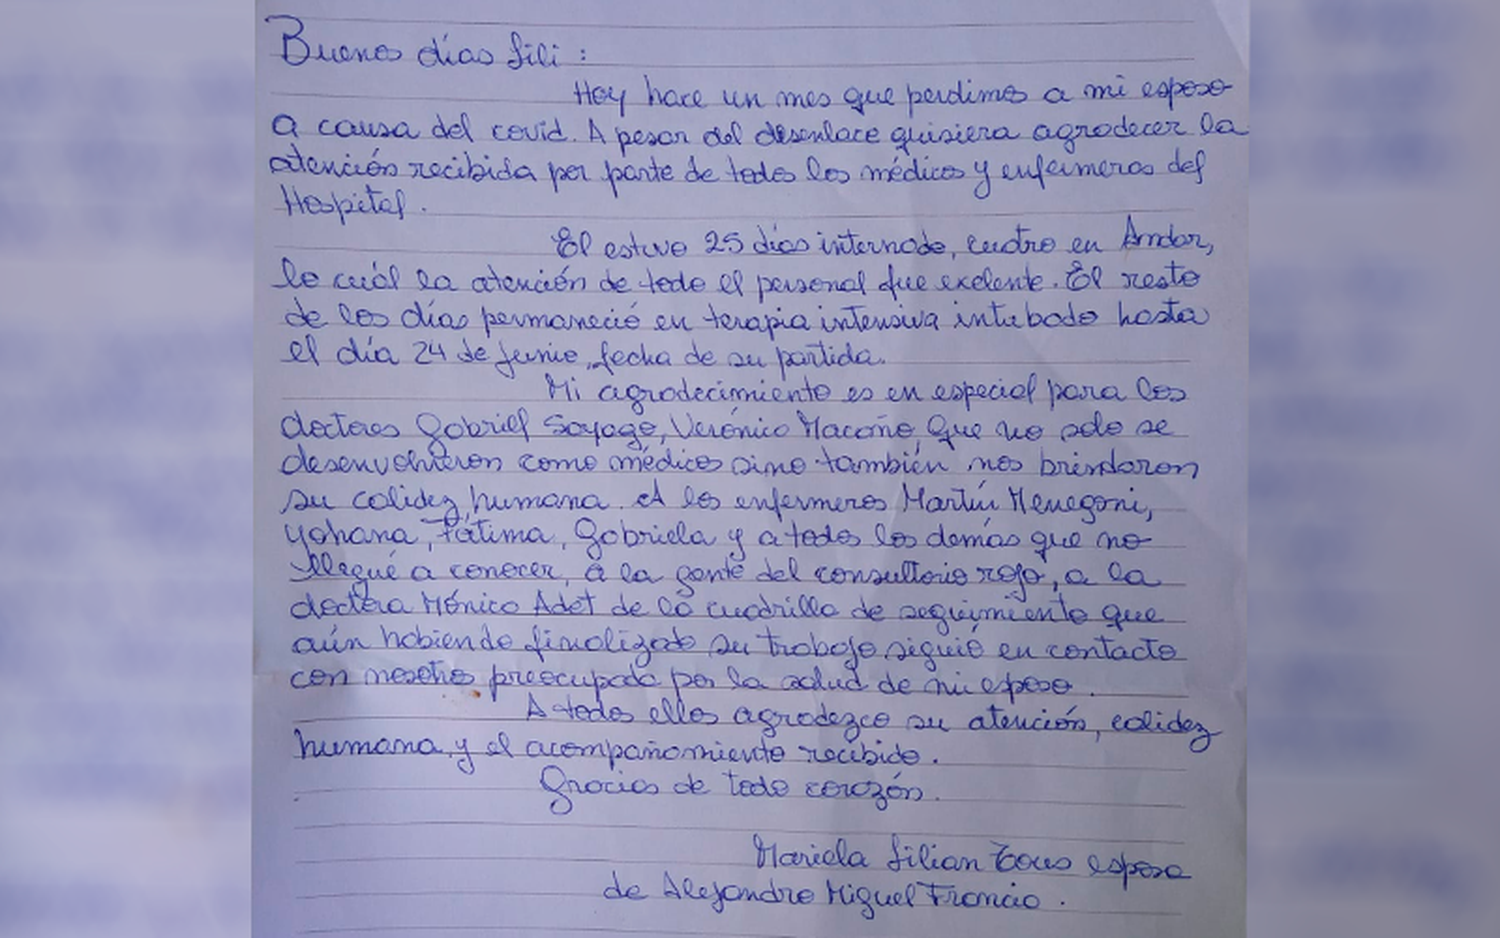 Buenos días Lili :
Hoy hace un mes que perdimos a mi esposo
a causa del covid. A pesar del desenlace quisiera agradecer la
atención recibida por parte de todos los médicos y enfermeros del
Hospital.
El estuvo 25 días internado, cuatro en Amdor,
lo cuál la atención de todo el personal fue exelente. El resto
de los días permaneció en terapia intensiva intubado hasta
el día 24 de junio, fecha de su partida.
Mi agradecimiento es en especial para los
doctores Gabriel Sayago, Verónica Macaño, que no solo se
desenvolvieron como médicos sino también nos brindaron
su calidez humana. A los enfermeros Martín Menegoni,
Yohana, Fátima, Gabriela y a todos los demás que no
llegué a conocer, a la gente del consultorio rojo, a la
doctora Mónica Adet de la cuadrilla de seguimiento que
aún habiendo finalizado su trabajo siguió en contacto
con nosotros preocupada por la salud de mi esposo.
A todos ellos agradezco su atención, calidez
humana y el acompañamiento recibido.
Gracias de todo corazón.
Mariela Lilian Tous esposa
de Alejandro Miguel Francio.